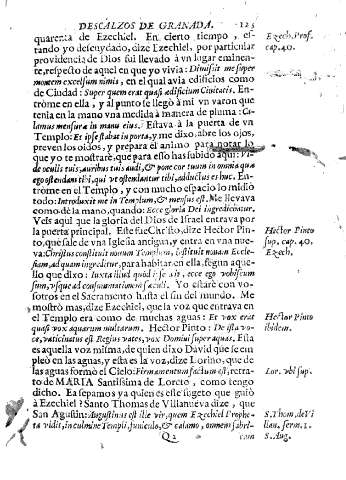 DESCALZOS DE GRANADA. 125
quarenta de Ezechiel. En cierto tiempo, es-
tando yo descuydado, dize Ezechiel, por particular
providencia de Dios fui llevado à vn lugar eminen-
te, respecto de aquel en que yo vivia: Dimissit me super
montem excelsum nimis, en el qual avia edificios como
de Ciudad: Super quem erat quasi ædificium Civitatis. En-
tròme en ella, y al punto se llegò à mi vn varon que
tenia en la mano vna medida à manera de pluma: Ca-
lamus mensuræ in manu eius. Estava à la puerta de vn
Templo: Et ipse stabat in porta, y me dixo, abre los ojos,
preven los oidos, y prepara el animo para notar lo
que yo te mostrarè, que para esso has subido aqui: Vi-
de oculis tuis, auribus tuis audi, & pone cor tuum in omnia quæ
ego ostendam tibi, qui vt ostendantur tibi, adductus es huc. En-
tròme en el Templo, y con mucho espacio lo midiò
todo: Introduxit me in Templum, & mensus est. Me llevava
como de la mano, quando: Ecce gloria Dei ingrediebatur.
Veis aqui que la gloria del Dios de Israel entrava por
la puerta principal. Este fue Christo, dize Hector Pin-
to, que sale de vna Iglesia antigua, y entra en vna nue-
va: Christus constituit nouum Templum, instituit nouam Eccle-
siam, ad quam ingreditur, para habitar en ella, segun aque-
llo que dixo: Iuxta illud quod ipse ait, ecce ego vobiscum
sum, vsque ad consummationem sæculi. Yo estarè con vo-
sotros en el Sacramento hasta el fin del mundo. Me
mostrò mas, dize Ezechiel, que la voz que entrava en
el Templo era como de muchas aguas: Et vox erat
quasi vox aquarum multarum. Hector Pinto: De ista vo-
ce, vaticinatus est Regius vates, vox Domini super aquas. Esta
es aquella voz misma, de quien dixo David que se em-
pleò en las aguas, y esta es la voz, dize Lorino, que de
las aguas formò el Cielo: Firmamentum factum est, retra-
to de MARIA Santissima de Loreto, como tengo
dicho. Ea sepamos ya quien es este sugeto que guiò
à Ezechiel? Santo Thomas de Villanueva dize, que
San Agustin: Augustinus est ille vir, quem Ezechiel Prophe-
ta vidit, in culmine Templi, funiculo, & calamo, omnem fabri-
Q2 cam
Ezech. Prof.
cap. 40.
Hector Pinto
sup. cap. 40.
Ezech.
Hector Pinto
ibidem.
Lor. vbi sup.
S. Thom. de Vi-
llan. serm. 1.
S. Aug.